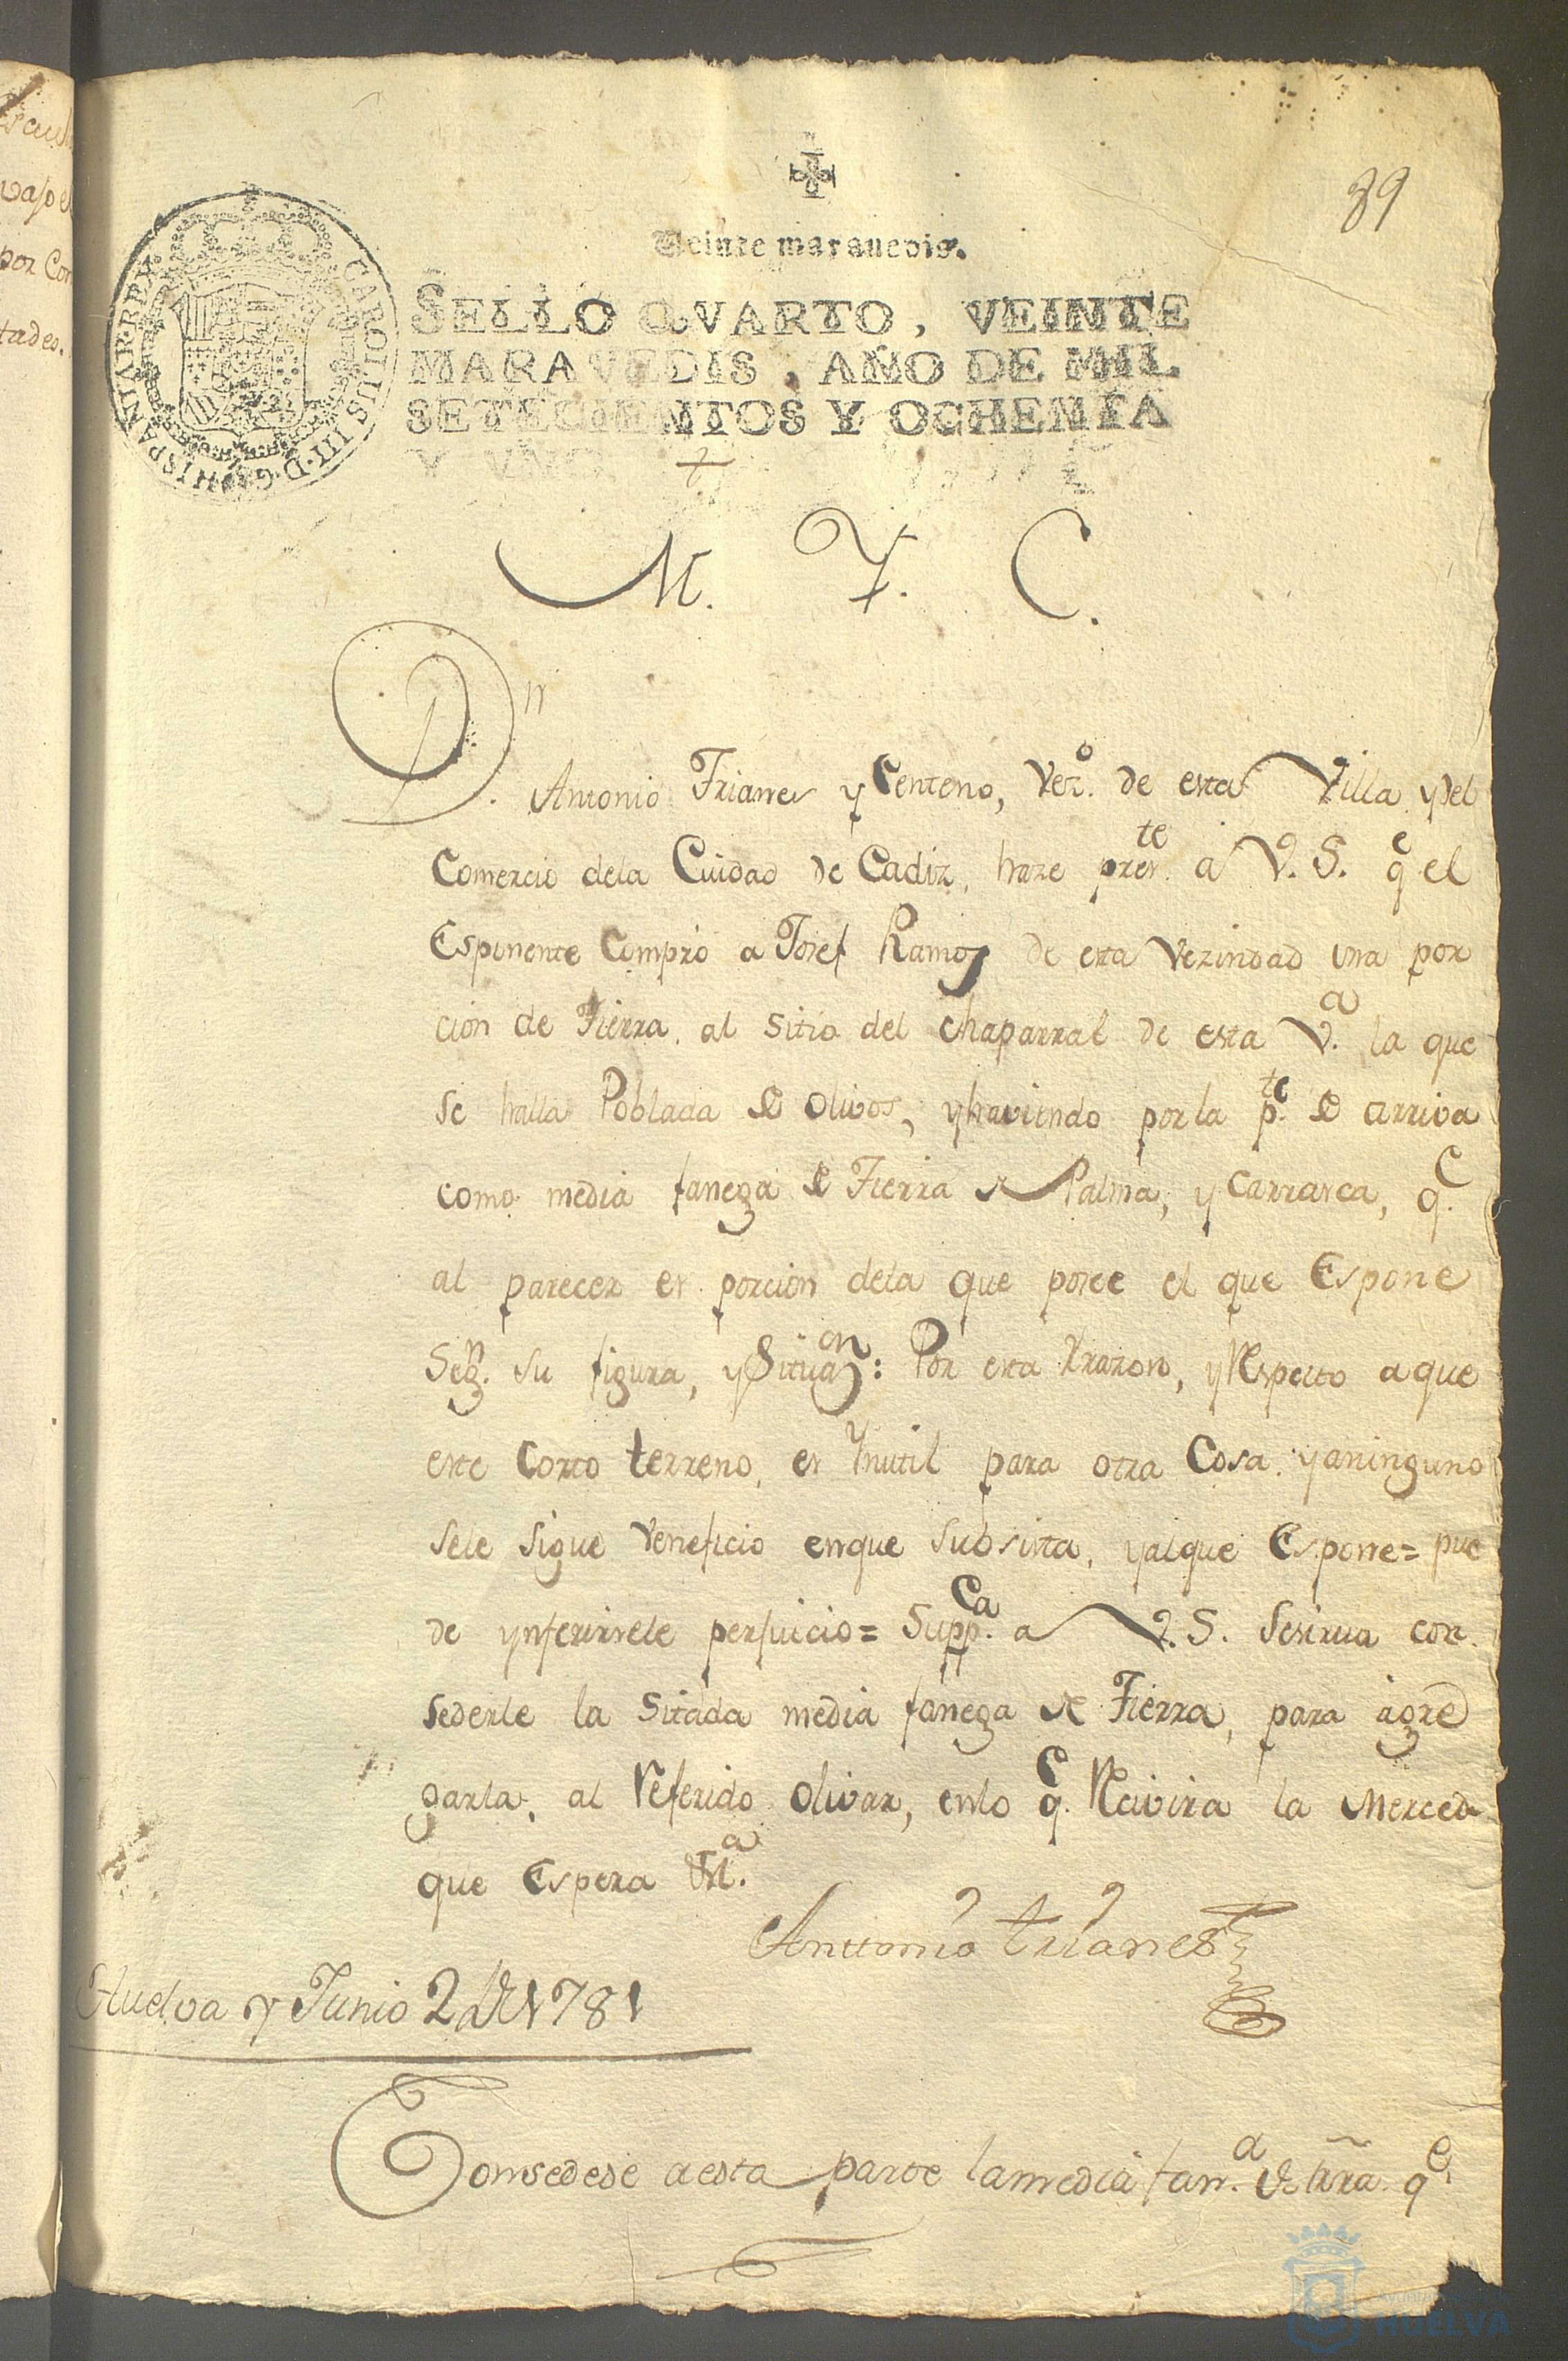 39
Veinte maravedis.
SELLO QVARTO, VEINTE
MARAVEDIS, AÑO DE MIL
SETECIENTOS Y OCHENTA
Y VNO.
CAROLUS III D G HISPANIAR REX
M. Y. C.
Dn. Antonio Trianes y Centeno, Vezo. de esta Villa y del
Comercio dela Ciudad de Cadiz, haze preste. a V. S. qe el
Esponente Compró a Josef Ramos de esta Vezindad una por
cion de Tierra, al sitio del chaparral de esta Va. la que
se halla Poblada de olivos, y haviendo por la pte. de arriva
como media fanega de Tierra de Palma, y Carrasca, qe.
al parecer es porcion dela que posee el que Espone
Segn. su figura, y Situacn: Por esta Rrazon, y Respecto a que
este Corto terreno, es Ynutil para otra Cosa, y a ninguno
sele sigue Veneficio en que subsista, y al que Espone= pue
de ynferirsele perjuicio= Suppca. a V. S. se sirva con
sederle la Sitada media fanega de Tierra, para agre
garla, al Referido olivar, en lo qe. Recivira la Merced
que Espera
Anttonio trianes
Huelva y Junio 2 de 1781
Consedese a esta parte la media fana. de trra. qe.
Ayuntamiento de
HUELVA